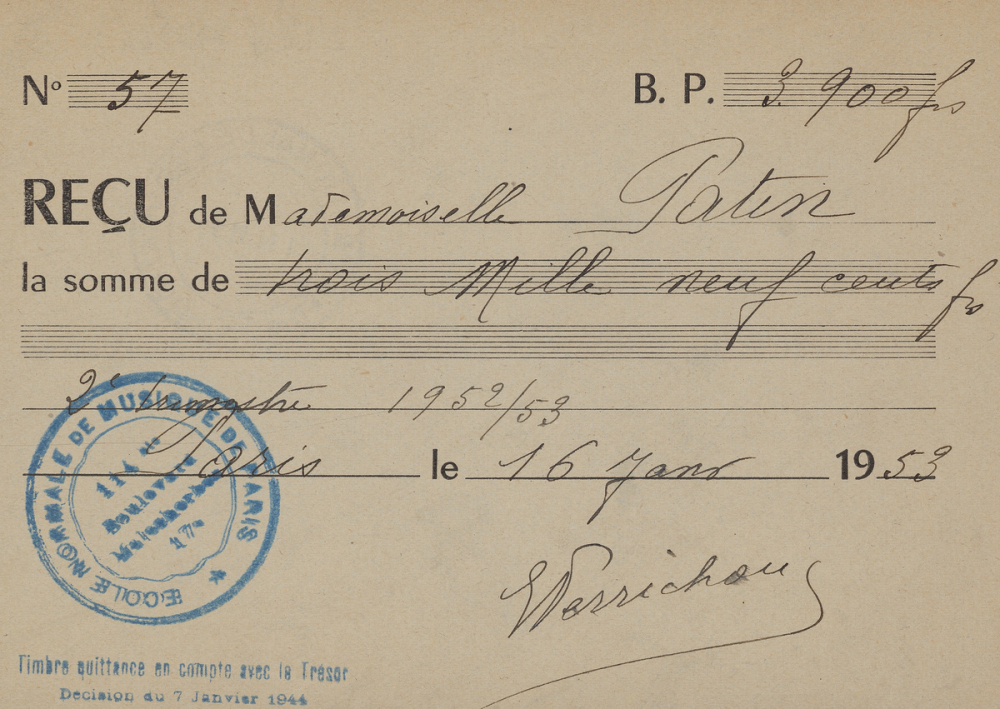 Nº 57 B. P. 3.900 frs
REÇU de Mademoiselle Patin
la somme de trois Mille neuf cents frs
2e trimestre 1952/53
Paris le 16 Janv 1953
ECOLE NORMALE DE MUSIQUE DE PARIS
114 bis
Boulevard
Malesherbes
17e
Timbre quittance en compte avec le Trésor
Décision du 7 Janvier 1944